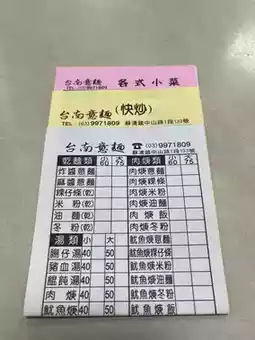 台南意麵 各式小菜
TEL:(03)9971809
台南意麵(快炒)
TEL:(03)9971809 蘇澳鎮中山路1段133號
台南意麵 ☎(03)9971809
蘇澳鎮中山路1段133號
乾麵類 小60 大75 肉焿類 小60 大75
炸醬意麵 肉焿意麵
麻醬意麵 肉焿粿條
粿仔條(乾) 肉焿米粉
米粉(乾) 肉焿油麵
油麵(乾) 肉焿飯
冬粉(乾) 肉焿冬粉
湯類 小 大 魷魚焿意麵
餶仔湯 40 50 魷魚焿粿仔條
豬血湯 40 50 魷魚焿米粉
餛飩湯 40 50 魷魚焿油麵
肉焿 40 50 魷魚焿飯
魷魚焿 40 50 魷魚焿冬粉